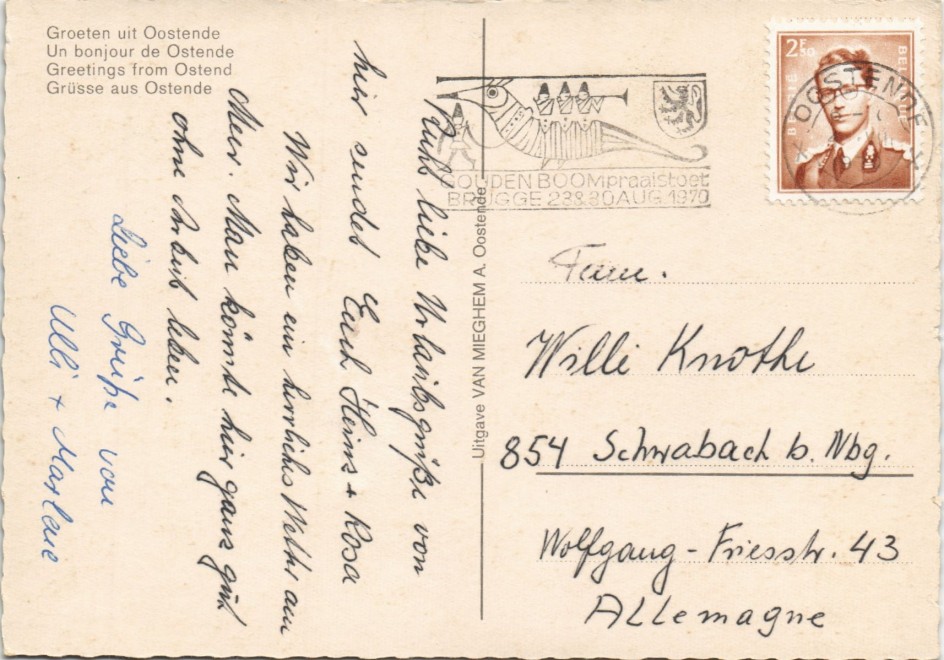 Groeten uit Oostende
Un bonjour de Ostende
Greetings from Ostend
Grüsse aus Ostende
Recht liebe Urlaubsgrüße von
hier sendet Euch Heins + Rosa
Wir haben ein herrliches Wetter am
Meer. Man könnte hier ganz gut
ohne Arbeit leben.
Liebe Grüße von
Ulli + Marlene
Uitgave VAN MIEGHEM A. Oostende
GOUDEN BOOMpraalstoet
BRUGGE 23&30 AUG. 1970
2F50
BELGIE
OOSTENDE
Fam.
Willi Knothe
854 Schwabach b. Nbg.
Wolfgang-Friesstr. 43
Allemagne